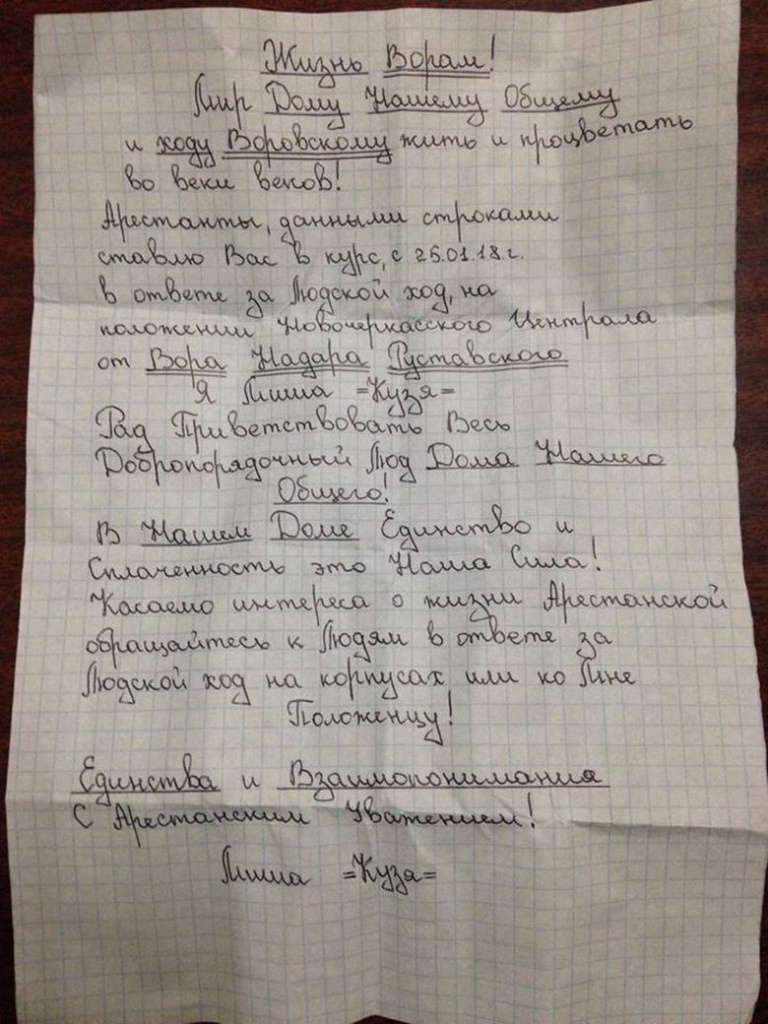 Жизнь Ворам!
Мир Дому Нашему Общему
и ходу Воровскому жить и процветать
во веки веков!
Арестанты, данными строками
ставлю Вас в курс, с 25.01.18 г.
в ответе за Людской ход, на
положении Новочеркасского Централа
от Вора Надара Руставского
Я Миша =Кузя=
Рад Приветствовать Весь
Добропорядочный Люд Дома Нашего
Общего!
В Нашем Доме Единство и
Сплаченность это Наша Сила!
Касаемо интереса о жизни Арестанской
обращайтесь к Людям в ответе за
Людской ход на корпусах или ко Мне
Положенцу!
Единства и Взаимопонимания
С Арестанским Уважением!
Миша =Кузя=